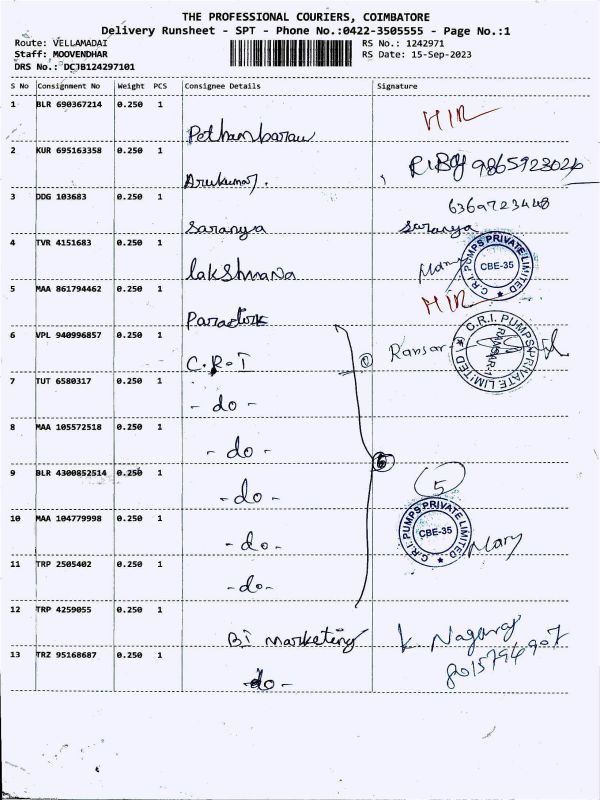 THE PROFESSIONAL COURIERS, COIMBATORE
Delivery Runsheet - SPT - Phone No.:0422-3505555 - Page No.:1
Route: VELLAMADAI RS No.: 1242971
Staff: MOOVENDHAR RS Date: 15-Sep-2023
DRS No.: DCJB124297101
S No Consignment No Weight PCS Consignee Details Signature
1 BLR 690367214 0.250 1
Pethambarau
2 KUR 695163358 0.250 1
Arukumar. 9865923026
3 DDG 103683 0.250 1 6369723448
Saranya Saranya
4 TVR 4151683 0.250 1
lakshmana Mary C.R.I. PUMPS PRIVATE LIMITED CBE-35
5 MAA 861794462 0.250 1
6 VPL 940996857 0.250 1
C.R.I Ransar C.R.I. PUMPS PRIVATE LIMITED
7 TUT 6580317 0.250 1
- do -
8 MAA 105572518 0.250 1
- do -
9 BLR 4300852514 0.250 1
- do - 5
10 MAA 104779998 0.250 1
- do - C.R.I. PUMPS PRIVATE LIMITED CBE-35 Mary
11 TRP 2505402 0.250 1
- do -
12 TRP 4259055 0.250 1
BI marketing K. Nagaraj
13 TRZ 95168687 0.250 1 8015794907
- do -